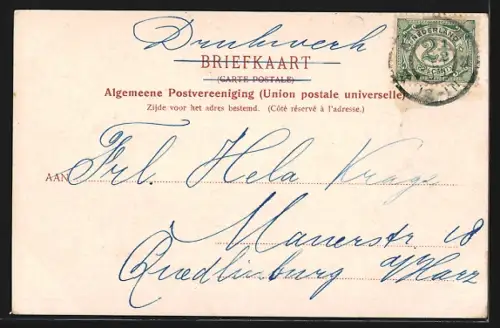 Drukwerk
BRIEFKAART
(CARTE POSTALE)
Algemeene Postvereeniging (Union postale universelle)
Zijde voor het adres bestemd. (Côté réservé à l'adresse.)
NEDERLAND
2½
CENT
AAN Frl. Hela Krage
Mauerstr 18
Quedlinburg a/Harz